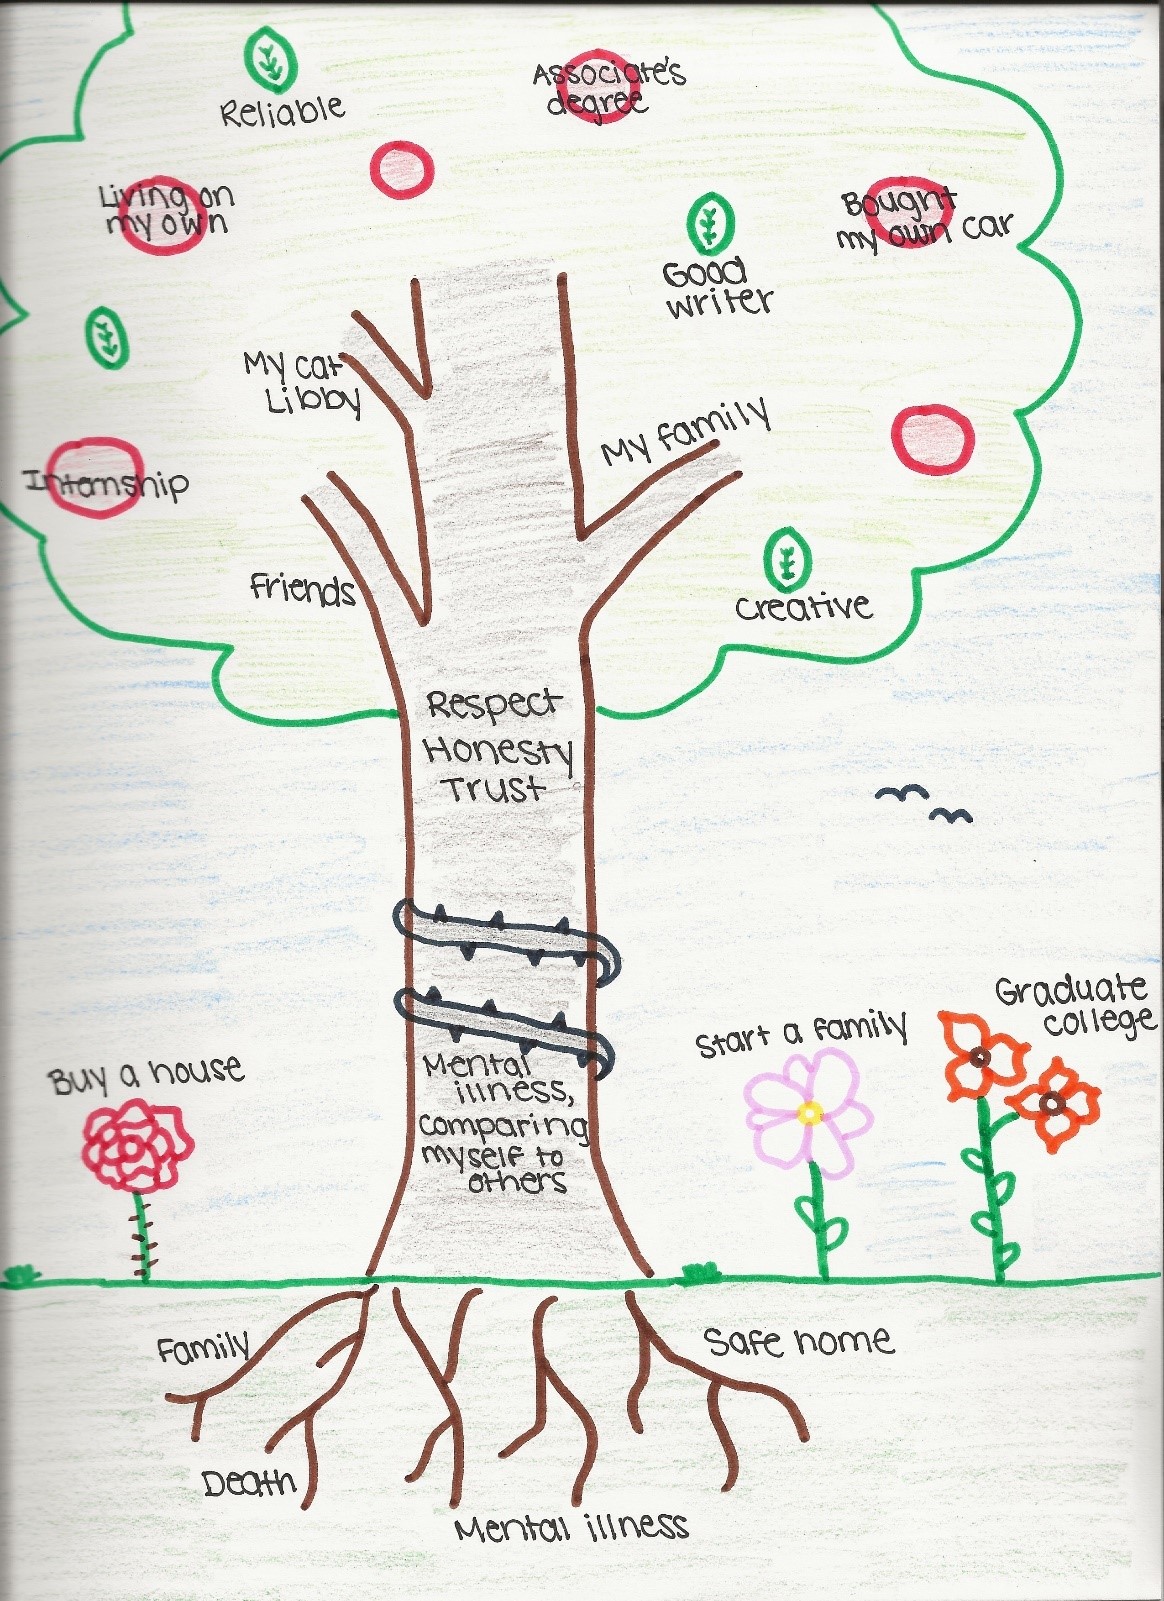 Associate's
degree
Reliable
Living on
my own
Bought
my own car
Good
writer
My cat
Libby
My family
Internship
Friends
Creative
Respect
Honesty
Trust
Mental
illness,
comparing
myself to
others
Graduate
college
Start a family
Buy a house
Family
Safe home
Death
Mental illness